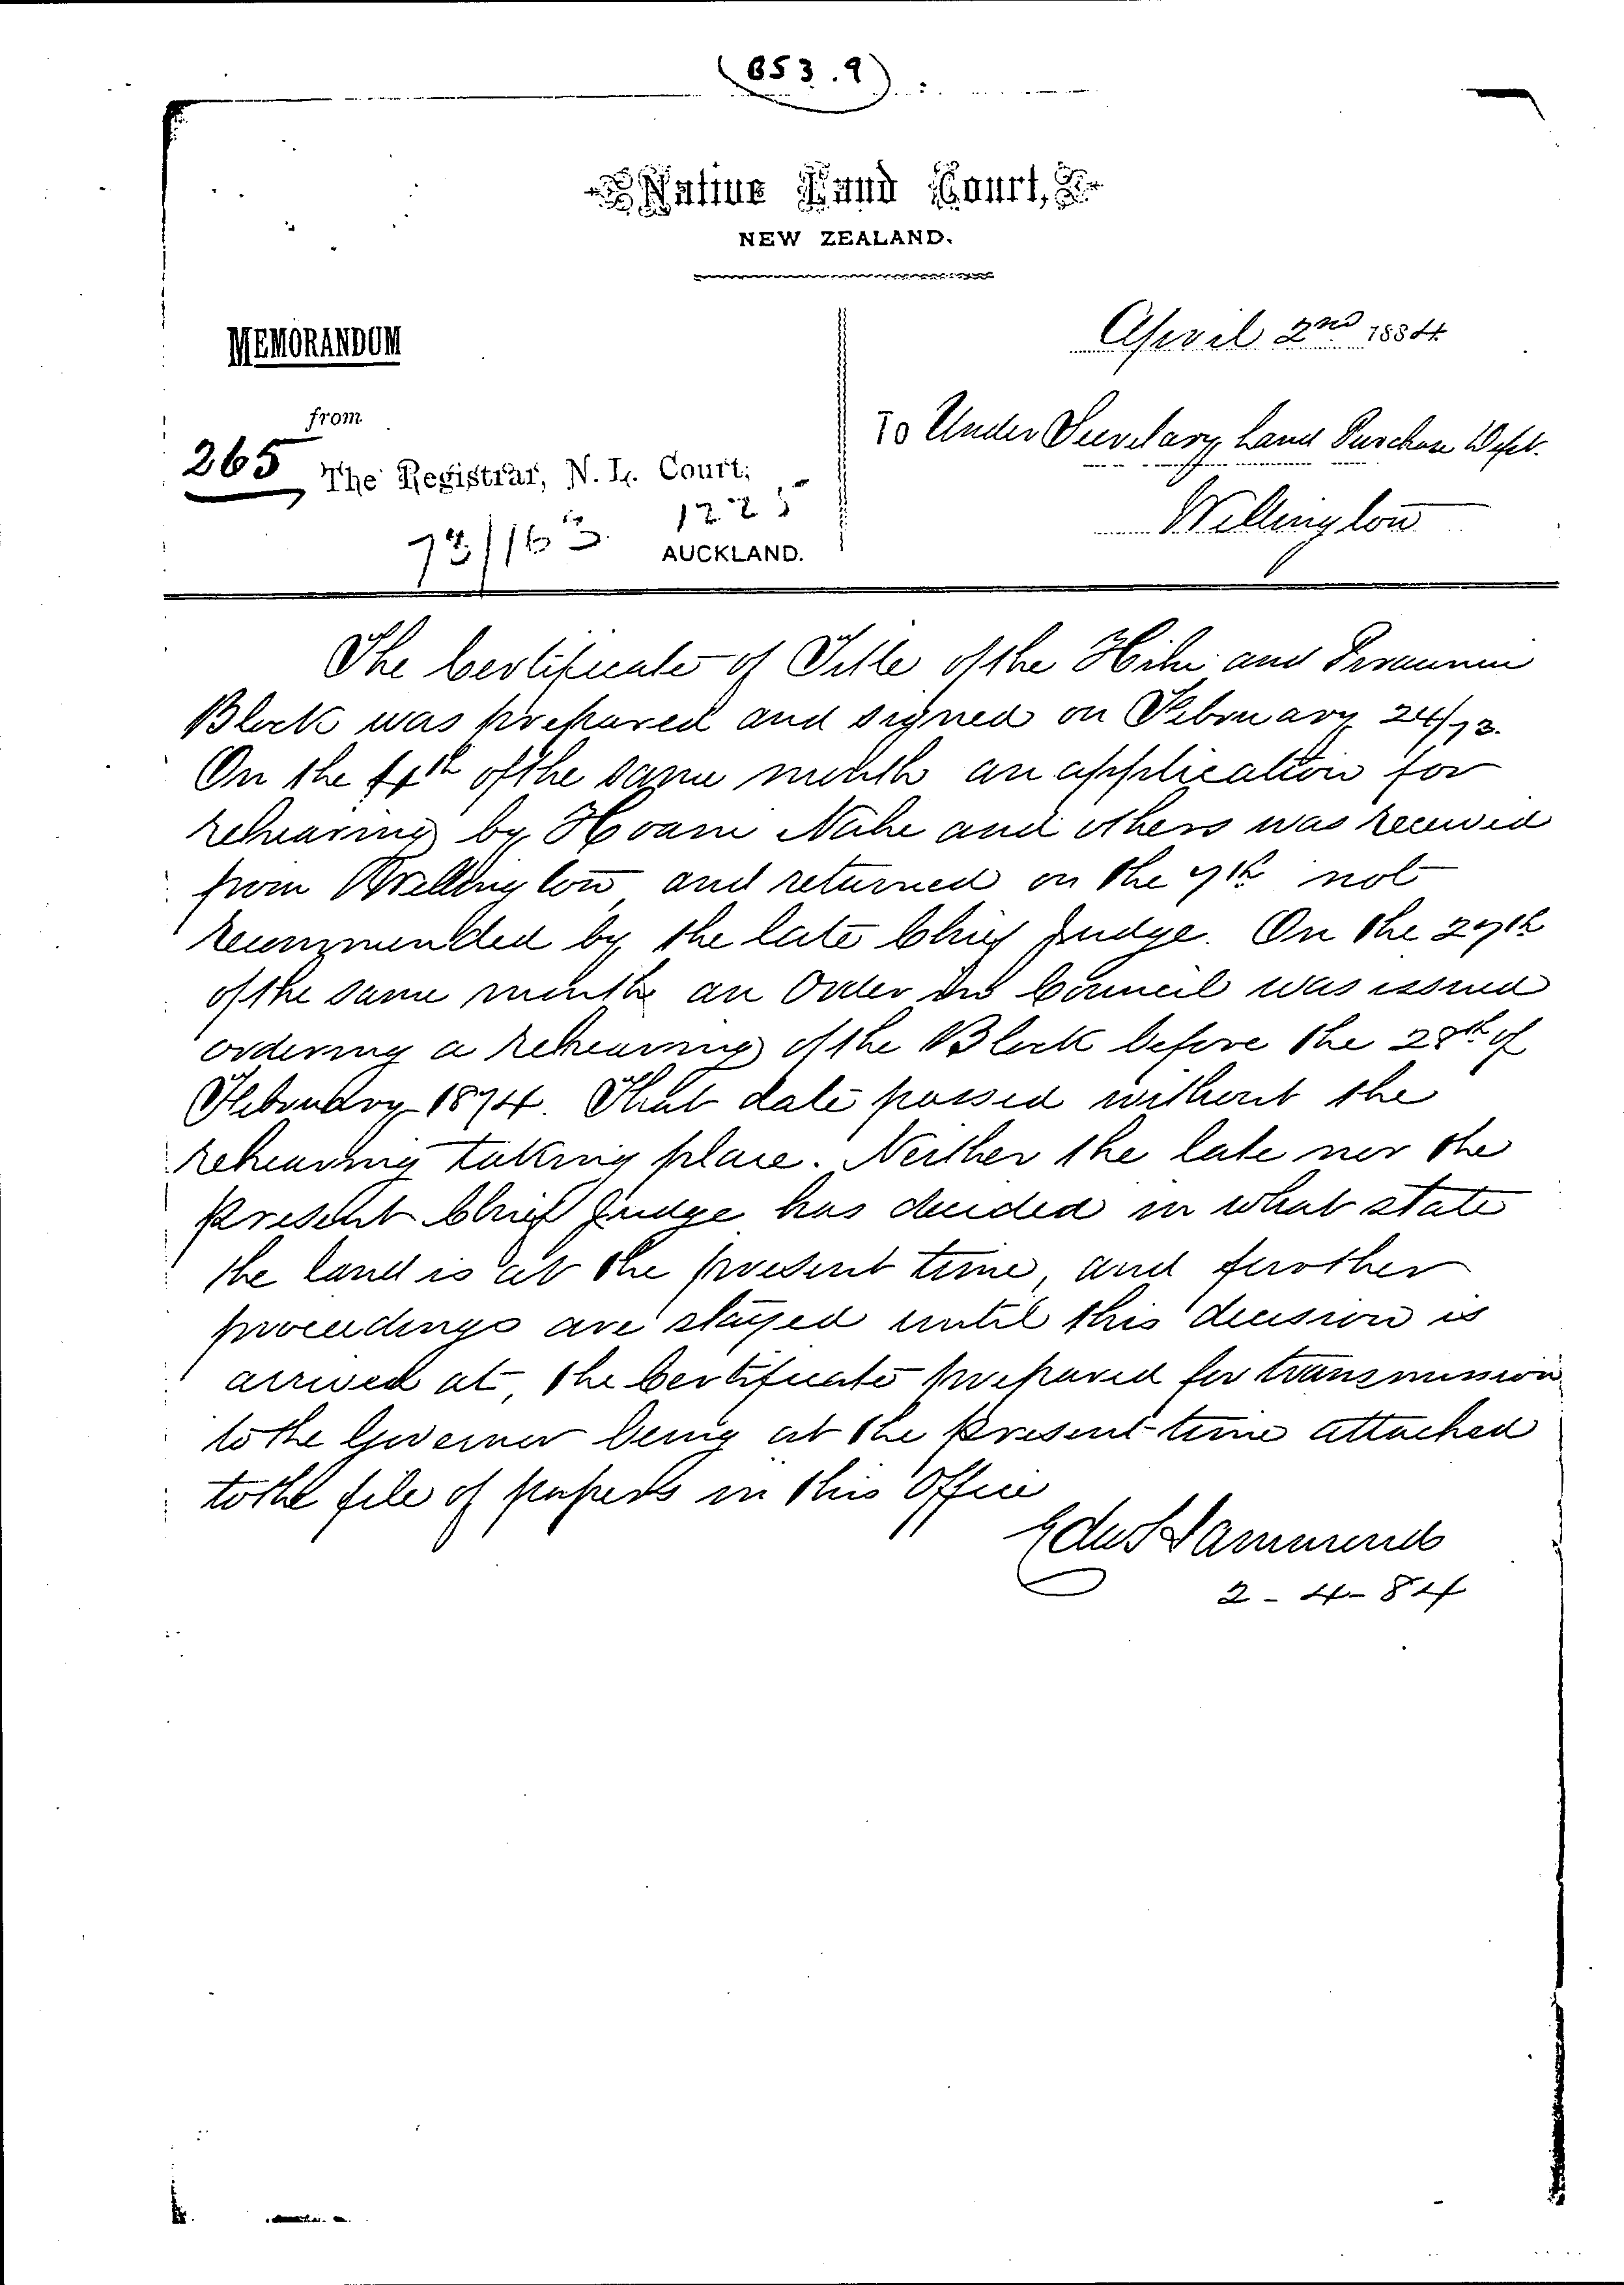 (853.9)
Native Land Court,
NEW ZEALAND.
MEMORANDUM
April 2nd 1884
from
To Under Secretary Land Purchase Dept.
265 The Registrar, N. L. Court,
Wellington
1225
73/163
AUCKLAND.
The Certificate of Title of the Hihi and Piraunui
Block was prepared and signed on February 24/73.
On the 4th of the same month an application for
rehearing by Hoani Nahe and others was received
from Wellington and returned on the 7th not
recommended by the late Chief Judge. On the 27th
of the same month an Order in Council was issued
ordering a rehearing of the Block before the 28th of
February 1874. That date passed without the
rehearing taking place. Neither the late nor the
present Chief Judge has decided in what state
the land is at the present time, and further
proceedings are stayed until this decision is
arrived at, the Certificate prepared for transmission
to the Governor being at the present time attached
to the file of papers in this Office
Edw Hammond
2-4-84